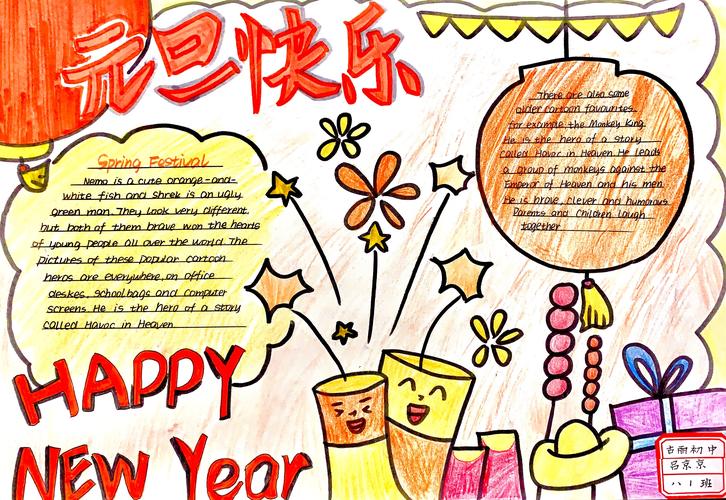 元旦快乐
Spring Festival
Nemo is a cute orange-and-
white fish and Shrek is an ugly
green man. They look very different,
but both of them brave won the hearts
of young people all over the world. The
pictures of these popular cartoon
heros are everywhere, on office
deskes, schoolbags and computer
screens. He is the hero of a story
called Havoc in Heaven
There are also some
older cartoon favourites.
for example, the Monkey King.
He is the hero of a story
called Havoc in Heaven. He leads
a group of monkeys against the
Emperor of Heaven and his men.
He is brave, clever and humorous
Parents and Children laugh
together
HAPPY
NEW Year
吉雨初中
吕京京
八1班